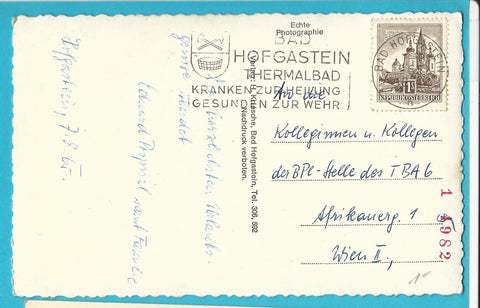 Hofgastein, 7.8.65.
Die herzlichsten Urlaubs-
grüsse sendet
Eduard
samt Familie
Echte
Photographie
Nachdruck verboten.
Bad Hofgastein, Tel. 308, 592
BAD
HOFGASTEIN
THERMALBAD
KRANKEN ZUR HEILUNG
GESUNDEN ZUR WEHR
BAD HOFGASTEIN
REPUBLIK ÖSTERREICH
An die
Kolleginnen u. Kollegen
der BPl-Stelle des TBA 6
Afrikanerg. 1
Wien II.,
1 4982